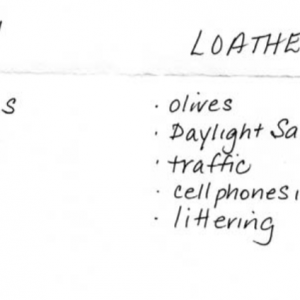 LOATHE
s
· olives
· Daylight Sa
· traffic
· cell phones i
· littering